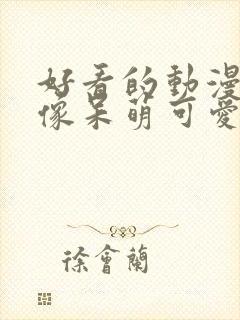 好看的動漫
像呆萌可愛
徐會蘭